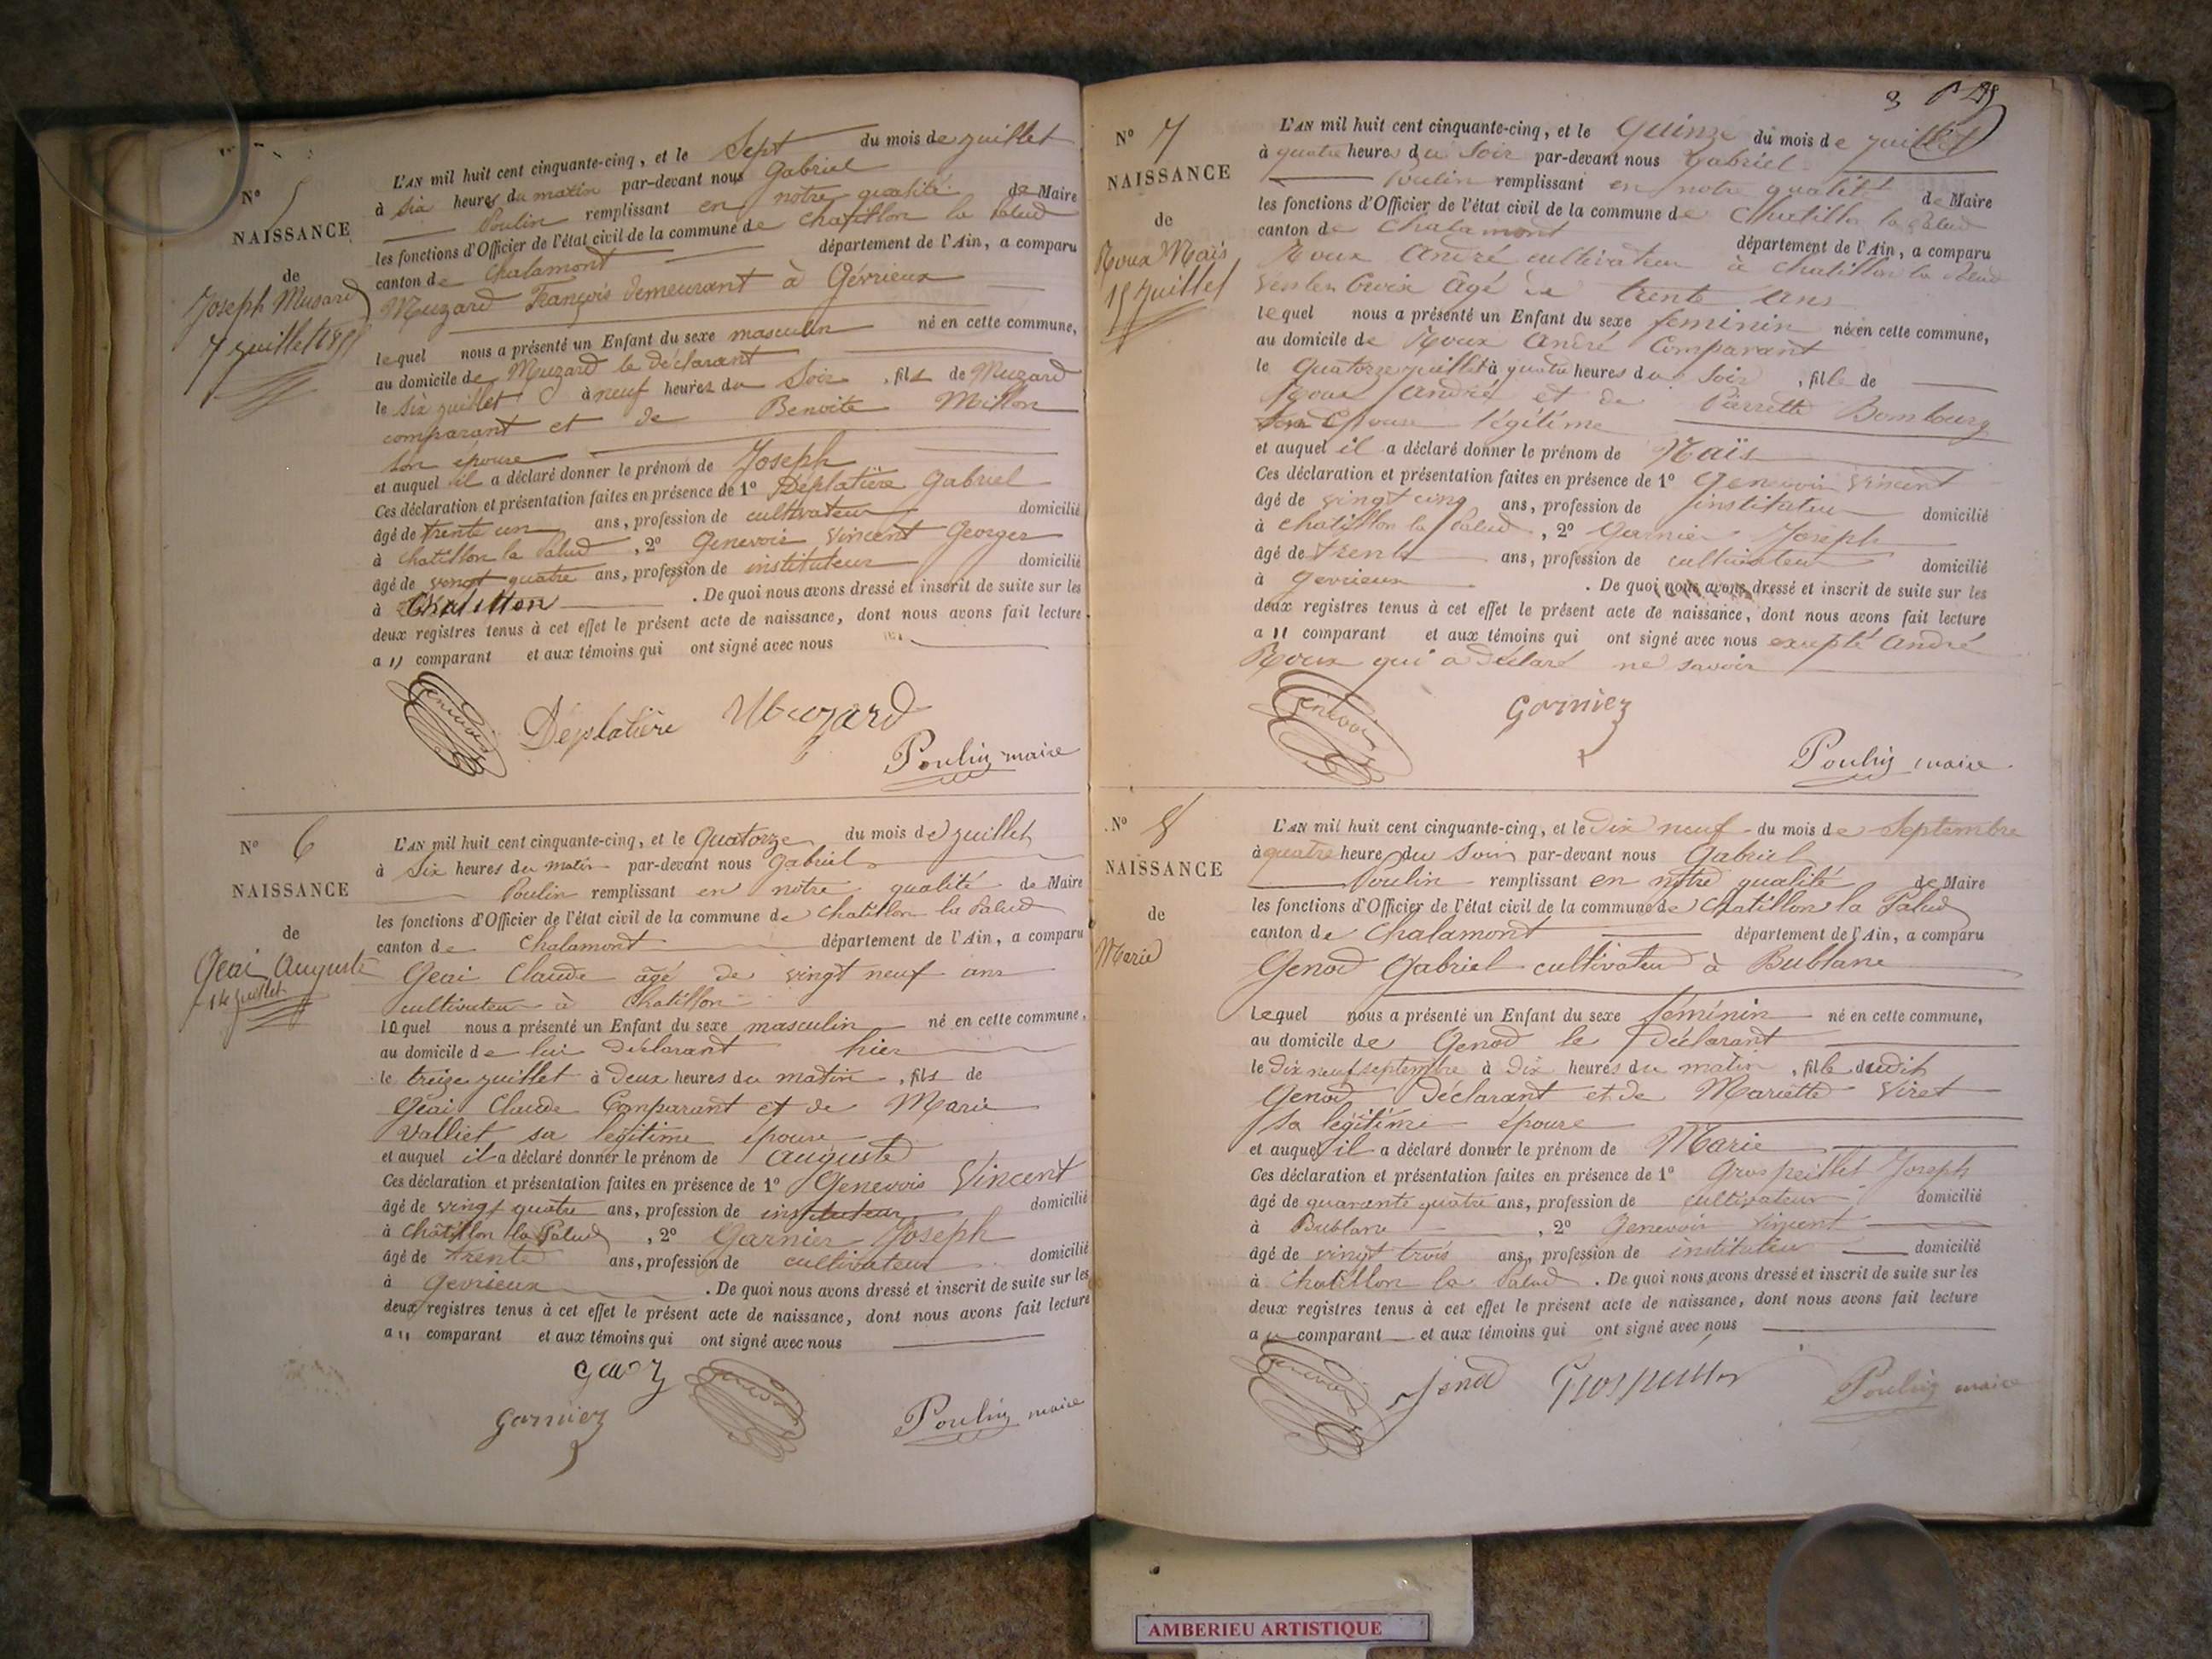 N° 5
NAISSANCE
de
Joseph Musard
7 juillet 1855
L'AN mil huit cent cinquante-cinq, et le Sept du mois de juillet
à six heures du matin par-devant nous Gabriel
Poulin remplissant en notre qualité de Maire
les fonctions d'Officier de l'état civil de la commune de Chatillon la Palud
canton de Chalamont département de l'Ain, a comparu
Muzard François demeurant à Gévrieux
lequel nous a présenté un Enfant du sexe masculin né en cette commune,
au domicile de Muzard le déclarant
le six juillet à neuf heures du Soir, fils de Muzard
comparant et de Benoite Millon
son épouse
et auquel il a déclaré donner le prénom de Joseph
Ces déclaration et présentation faites en présence de 1° Déplatière Gabriel
âgé de trente un ans, profession de cultivateur domicilié
à Chatillon la Palud, 2° Genevois Vincent Georges
âgé de vingt quatre ans, profession de instituteur domicilié
à Chatillon. De quoi nous avons dressé et inscrit de suite sur les
deux registres tenus à cet effet le présent acte de naissance, dont nous avons fait lecture
a u comparant et aux témoins qui ont signé avec nous
Genevois Déplatière Muzard
Poulin maire
N° 6
NAISSANCE
de
Geai Auguste
14 juillet
L'AN mil huit cent cinquante-cinq, et le Quatorze du mois de juillet
à Six heures du matin par-devant nous Gabriel
Poulin remplissant en notre qualité de Maire
les fonctions d'Officier de l'état civil de la commune de Chatillon la Palud
canton de Chalamont département de l'Ain, a comparu
Geai Claude âgé de vingt neuf ans
cultivateur à Chatillon
lequel nous a présenté un Enfant du sexe masculin né en cette commune,
au domicile de lui déclarant hier
le treize juillet à deux heures du matin, fils de
Geai Claude Comparant et de Marie
Valliet sa légitime épouse
et auquel il a déclaré donner le prénom de Auguste
Ces déclaration et présentation faites en présence de 1° Genevois Vincent
âgé de vingt quatre ans, profession de instituteur domicilié
à Châtillon la Palud, 2° Garnier Joseph
âgé de trente ans, profession de cultivateur domicilié
à Gevrieux. De quoi nous avons dressé et inscrit de suite sur les
deux registres tenus à cet effet le présent acte de naissance, dont nous avons fait lecture
a u comparant et aux témoins qui ont signé avec nous
Genevois
Garnier Poulin maire
3
N° 7
NAISSANCE
de
Roux Naïs
15 juillet
L'AN mil huit cent cinquante-cinq, et le Quinze du mois de juillet
à quatre heures du Soir par-devant nous Gabriel
Poulin remplissant en notre qualité de Maire
les fonctions d'Officier de l'état civil de la commune de Chatillon la Palud
canton de Chalamont département de l'Ain, a comparu
Roux André cultivateur à Chatillon la Palud
Croix âgé de trente ans
lequel nous a présenté un Enfant du sexe feminin né en cette commune,
au domicile de Roux André Comparant
le Quatorze juillet à quatre heures du Soir, fille de
Roux André et de Pierrette Bombourg
son Epouse légitime
et auquel il a déclaré donner le prénom de Naïs
Ces déclaration et présentation faites en présence de 1° Genevois Vincent
âgé de vingt cinq ans, profession de instituteur domicilié
à Chatillon la Palud, 2° Garnier Joseph
âgé de trente ans, profession de cultivateur domicilié
à Gevrieux. De quoi nous avons dressé et inscrit de suite sur les
deux registres tenus à cet effet le présent acte de naissance, dont nous avons fait lecture
a u comparant et aux témoins qui ont signé avec nous excepté André
Roux qui a déclaré ne savoir
Genevois Garnier
Poulin maire
N° 8
NAISSANCE
de
Marie
L'AN mil huit cent cinquante-cinq, et le Dix neuf du mois de Septembre
à quatre heure du Soir par-devant nous Gabriel
Poulin remplissant en notre qualité de Maire
les fonctions d'Officier de l'état civil de la commune de Chatillon la Palud
canton de Chalamont département de l'Ain, a comparu
Genod Gabriel cultivateur à Bublane
lequel nous a présenté un Enfant du sexe féminin né en cette commune,
au domicile de Genod le Déclarant
le Dix neuf septembre à Dix heures du matin, fille dudit
Genod Déclarant et de Mariette Viret
sa légitime épouse
et auquel il a déclaré donner le prénom de Marie
Ces déclaration et présentation faites en présence de 1° Grospeillet Joseph
âgé de quarante quatre ans, profession de cultivateur domicilié
à Bublane, 2° Genevois Vincent
âgé de vingt trois ans, profession de instituteur domicilié
à Chatillon la Palud. De quoi nous avons dressé et inscrit de suite sur les
deux registres tenus à cet effet le présent acte de naissance, dont nous avons fait lecture
a u comparant et aux témoins qui ont signé avec nous
Genevois Genod Grospeillet Poulin maire
AMBERIEU ARTISTIQUE